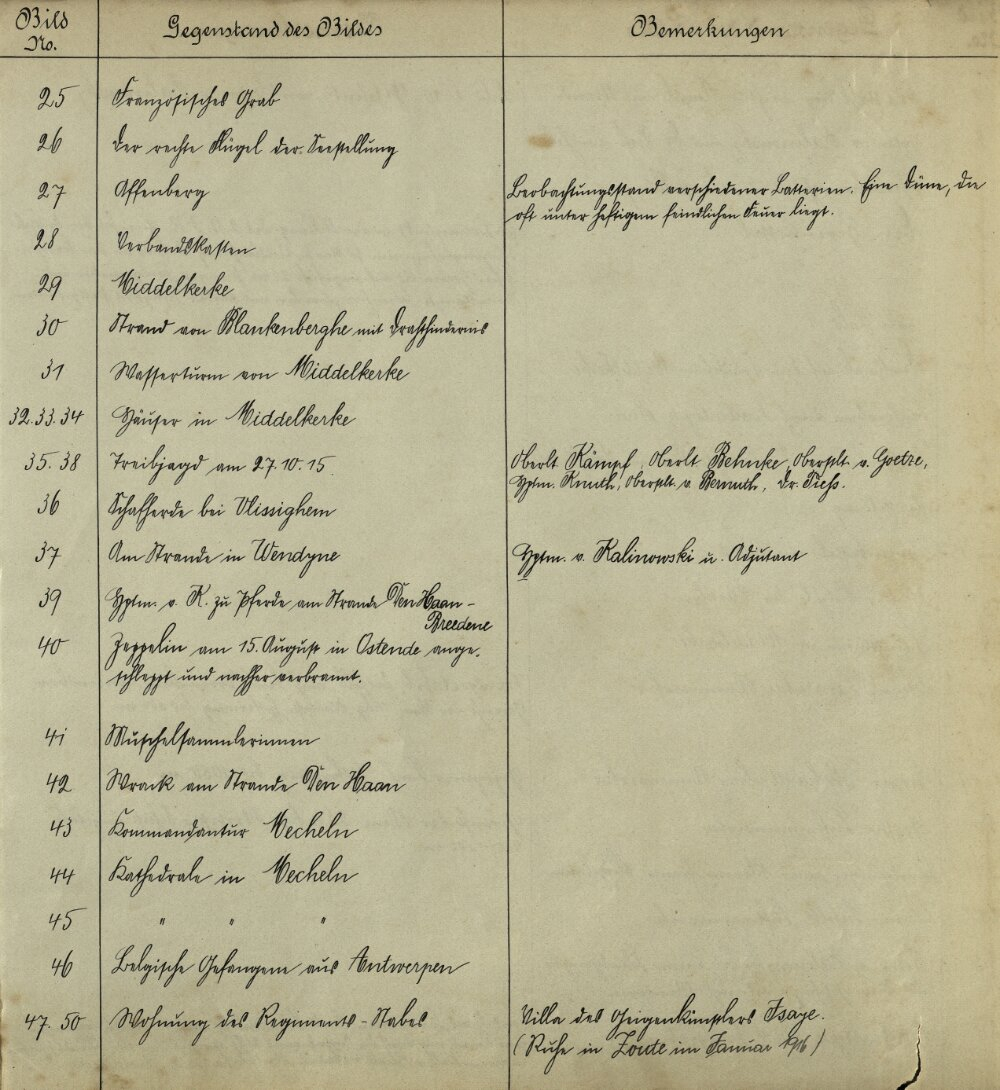 Bild No. Gegenstand des Bildes Bemerkungen
25 Französisches Grab
26 Der rechte Flügel der Seestellung
27 Affenberg Beobachtungsstand verschiedener Batterien. Eine Düne, die
oft unter heftigem feindlichen Feuer liegt.
28 Verbandskasten
29 Middelkerke
30 Strand von Blankenberghe mit Drahthindernis
31 Wasserturm von Middelkerke
32.33.34 Häuser in Middelkerke
35.38 Treibjagd am 27.10.15. Oberlt. Kämpf, Oberlt. Behnke, Oberstlt. v. Goetze,
Hptm. Knuth, Oberstlt. v. Bernuth, Dr. Tiess.
36 Schafherde bei Vlissighem
37 Am Strande in Wendyne Hptm. v. Kalinowski u. Adjutant
39 Hptm. v. K. zu Pferde am Strande Den Haan-
Breedene
40 Zeppelin am 15. August in Ostende ange-
schleppt und nachher verbrannt.
41 Muschelsammlerinnen
42 Wrack am Strande Den Haan
43 Kommandantur Mecheln
44 Kathedrale in Mecheln
45 " " "
46 Belgische Gefangene aus Antwerpen
47.50 Wohnung des Regiments-Stabes Villa des Geigenkünstlers Isaye.
(Ruhe in Zoute im Januar 1916)